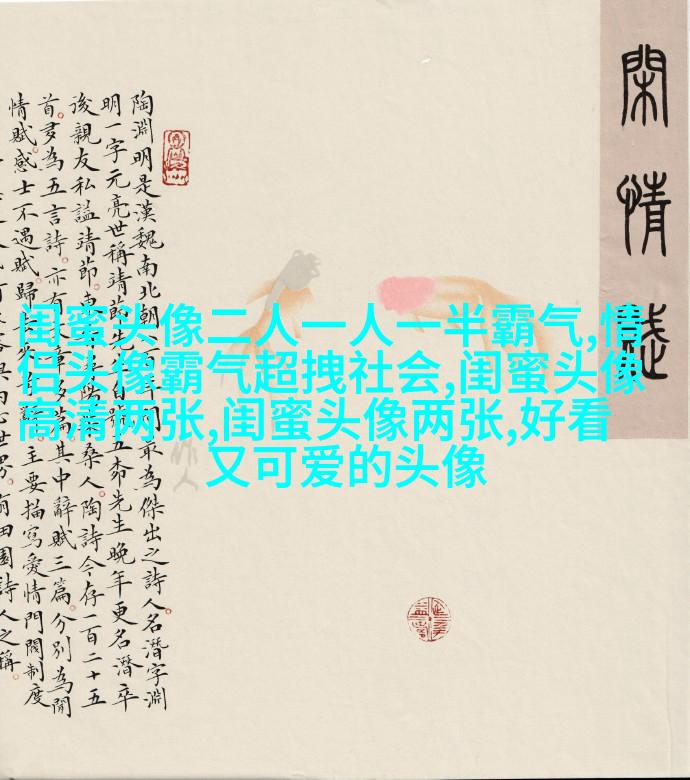 閑情
陶淵明是漢魏南北朝年間最為傑出之詩人名潛字淵
明一字元亮世稱靖節先生號五柳先生晚年更名潛卒
後親友私謚靖節東桑人陶詩今存一百二十五
首多為五言詩亦有章多篇其中辭賦三篇分別為閒
情賦感士不遇賦歸主要描寫愛情門閥制度
田園詩人之稱
闺蜜头像二人一人一半霸气,情
侣头像霸气超拽社会,闺蜜头像
高清两张,闺蜜头像两张,好看
又可爱的头像